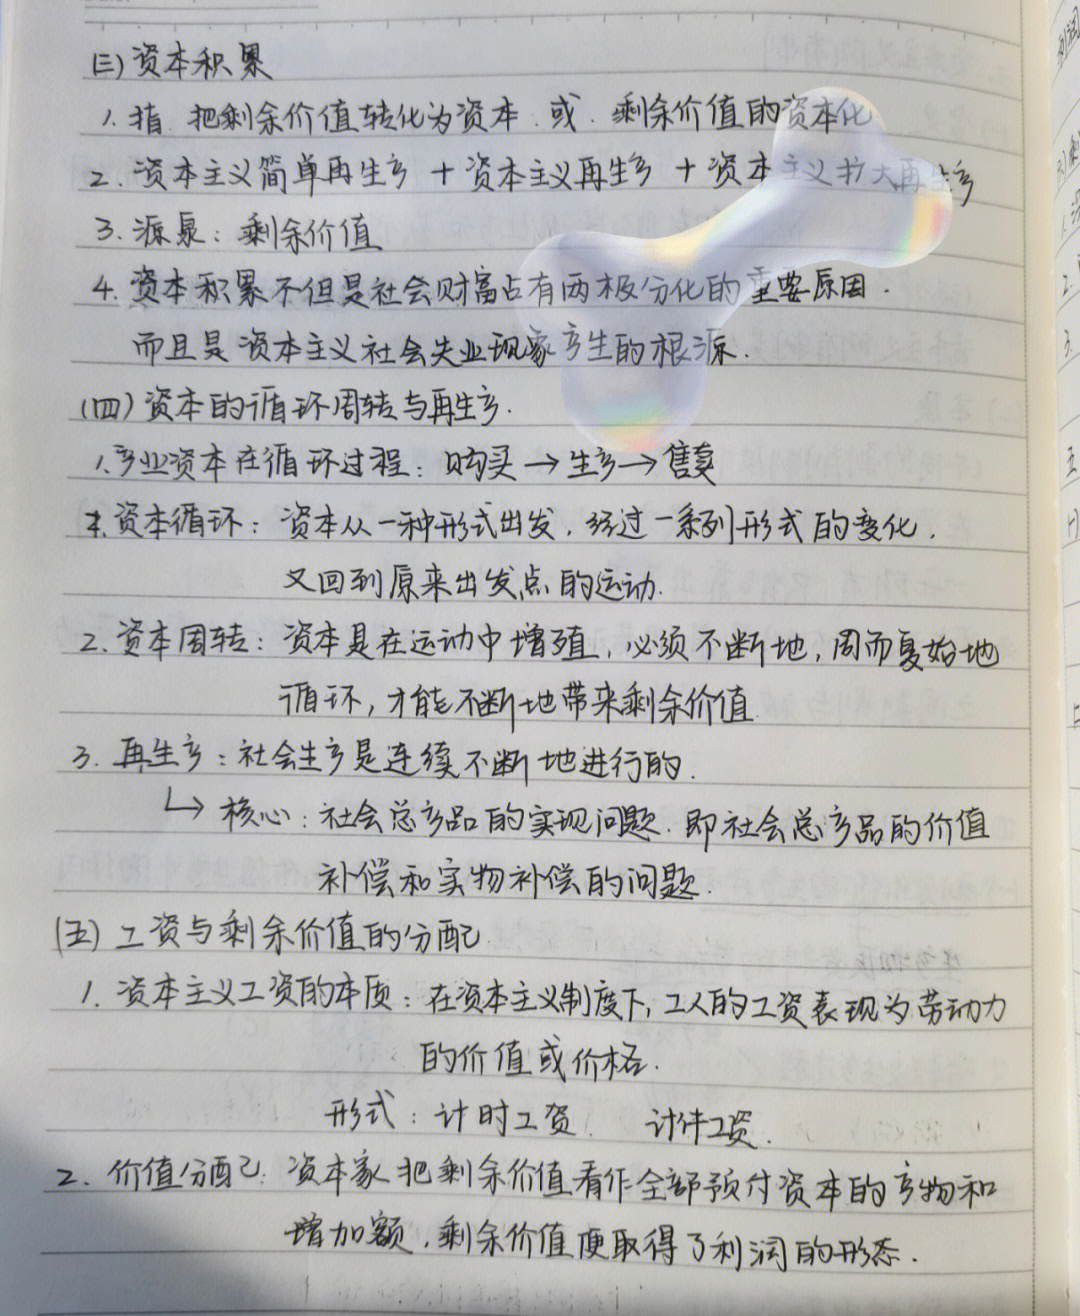 (三) 资本积累
1. 指 把剩余价值转化为资本 . 或 . 剩余价值的资本化
2. 资本主义简单再生产 + 资本主义再生产 + 资本主义扩大再生产
3. 源泉：剩余价值
4. 资本积累不但是社会财富占有两极分化的重要原因 .
而且是资本主义社会失业现象产生的根源 .
(四) 资本的循环周转与再生产 .
1. 产业资本在循环过程：购买 → 生产 → 售卖
资本循环：资本从一种形式出发 . 经过一系列形式的变化 .
又回到原来出发点的运动 .
2. 资本周转：资本是在运动中增殖 , 必须不断地 , 周而复始地
循环 , 才能不断地带来剩余价值
3. 再生产：社会生产是连续不断地进行的 .
↳ 核心：社会总产品的实现问题 . 即社会总产品的价值
补偿和实物补偿的问题 .
(五) 工资与剩余价值的分配
1. 资本主义工资的本质：在资本主义制度下 , 工人的工资表现为劳动力
的价值或价格 .
形式：计时工资 . 计件工资 .
2. 价值分配：资本家把剩余价值看作全部预付资本的产物和
增加额 , 剩余价值便取得了利润的形态 .